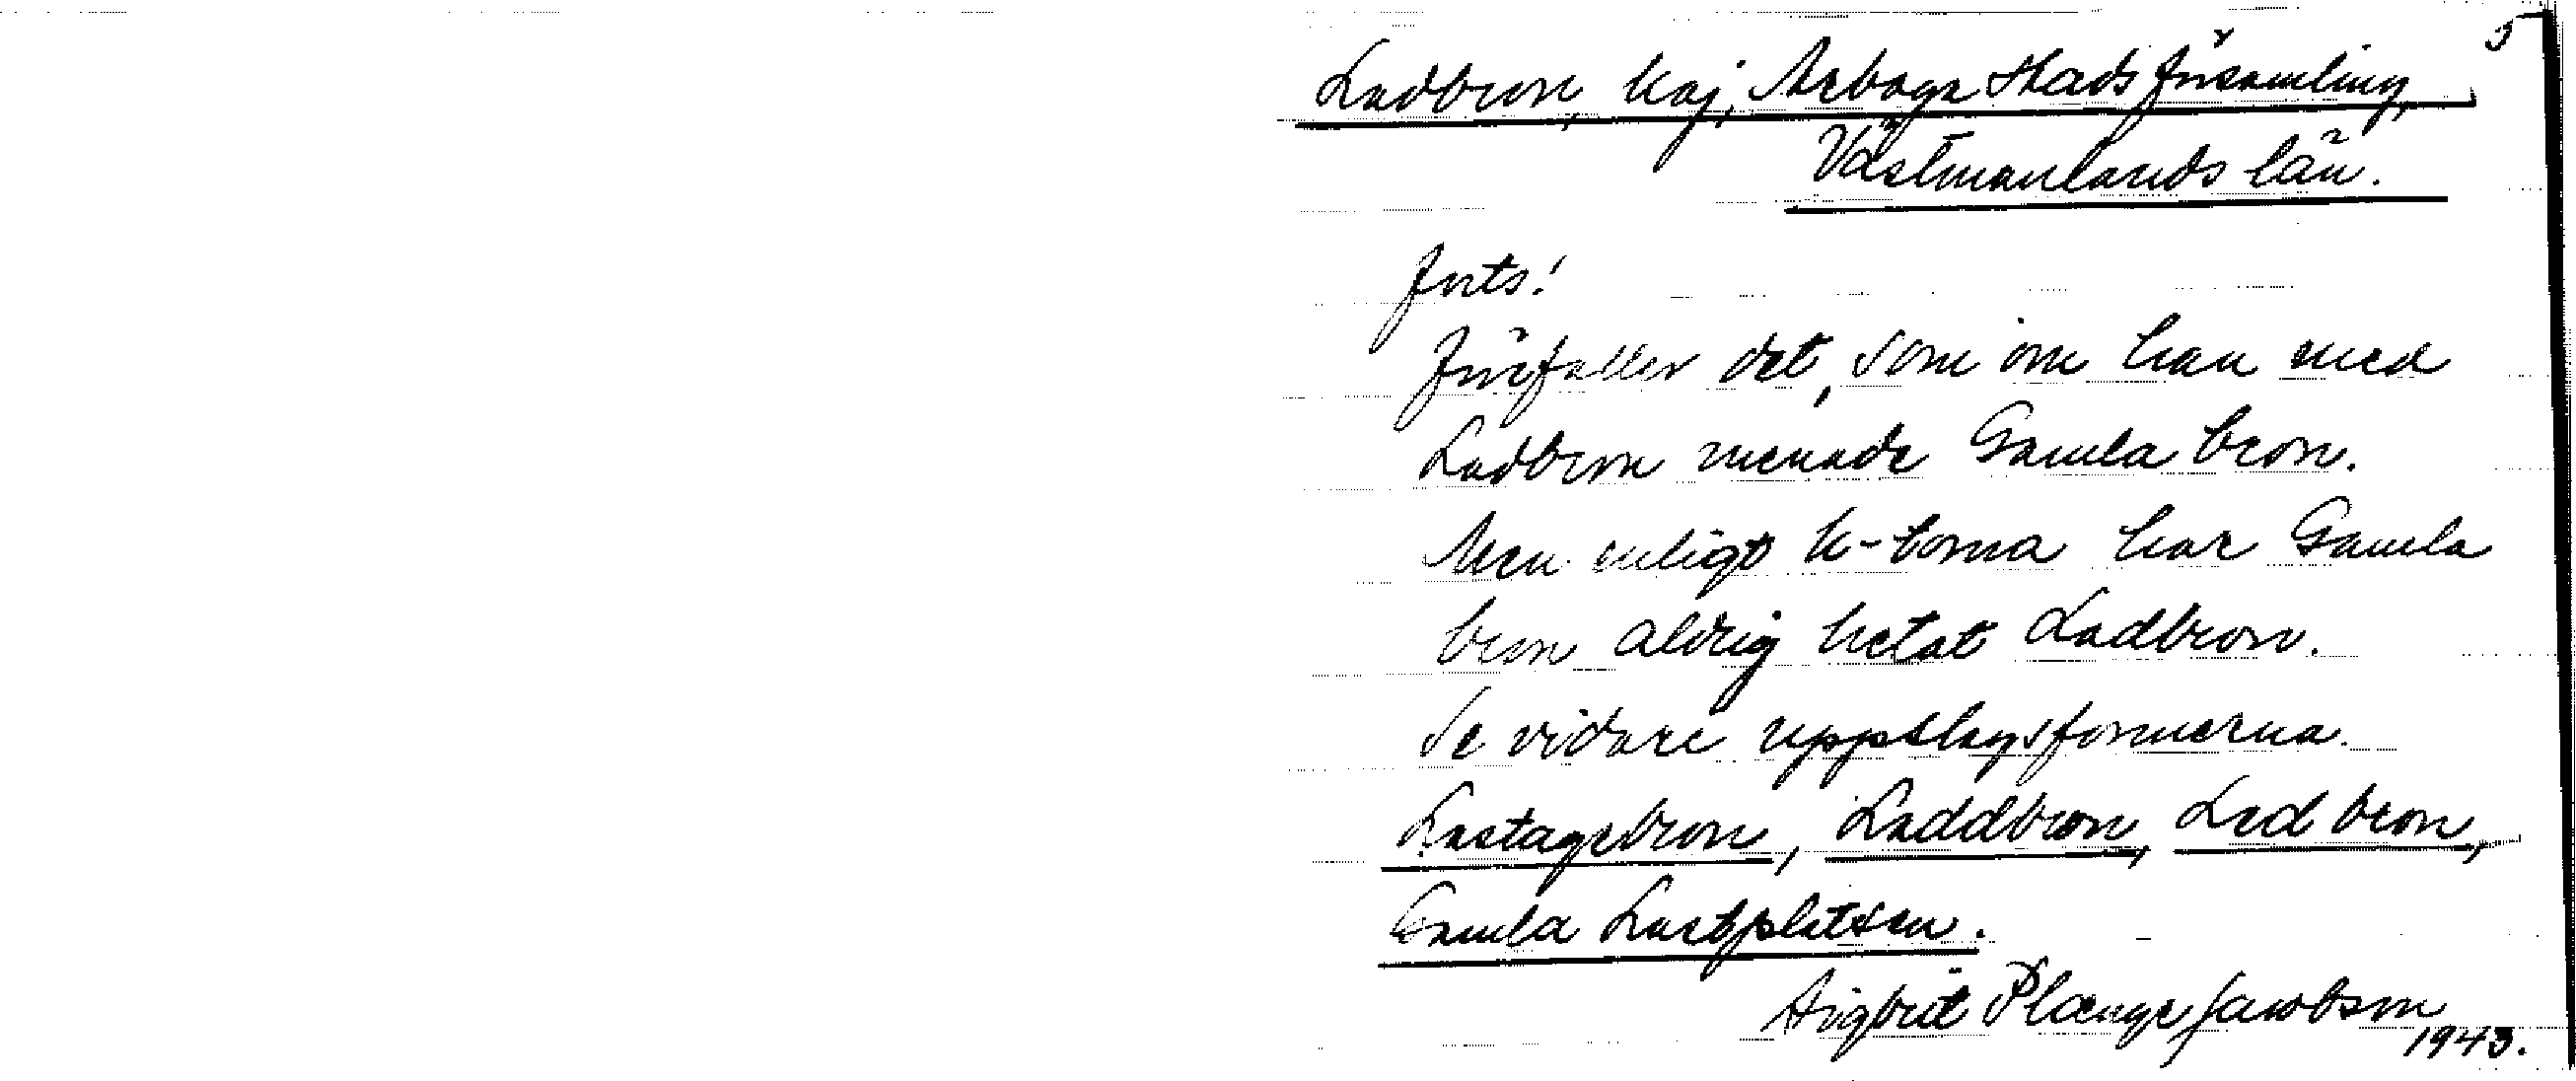 5
Ladbron, kaj, Arboga stads församling,
Västmanlands län.
forts!
förefaller det, som om han med
Ladbron menade Gamla bron.
Men enligt k-borna har Gamla
bron aldrig hetat Ladbron.
Se vidare uppslagsformerna.
Lastagebron, Laddbron, Led bron,
Gamla Lastplatsen.
Sigbrit Plænge Jacobson
1943.